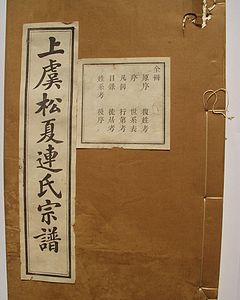 上虞松夏連氏宗譜
全冊
原序 復姓考
序 世系表
凡例 行第考
目錄 徙居考
姓系考 後序